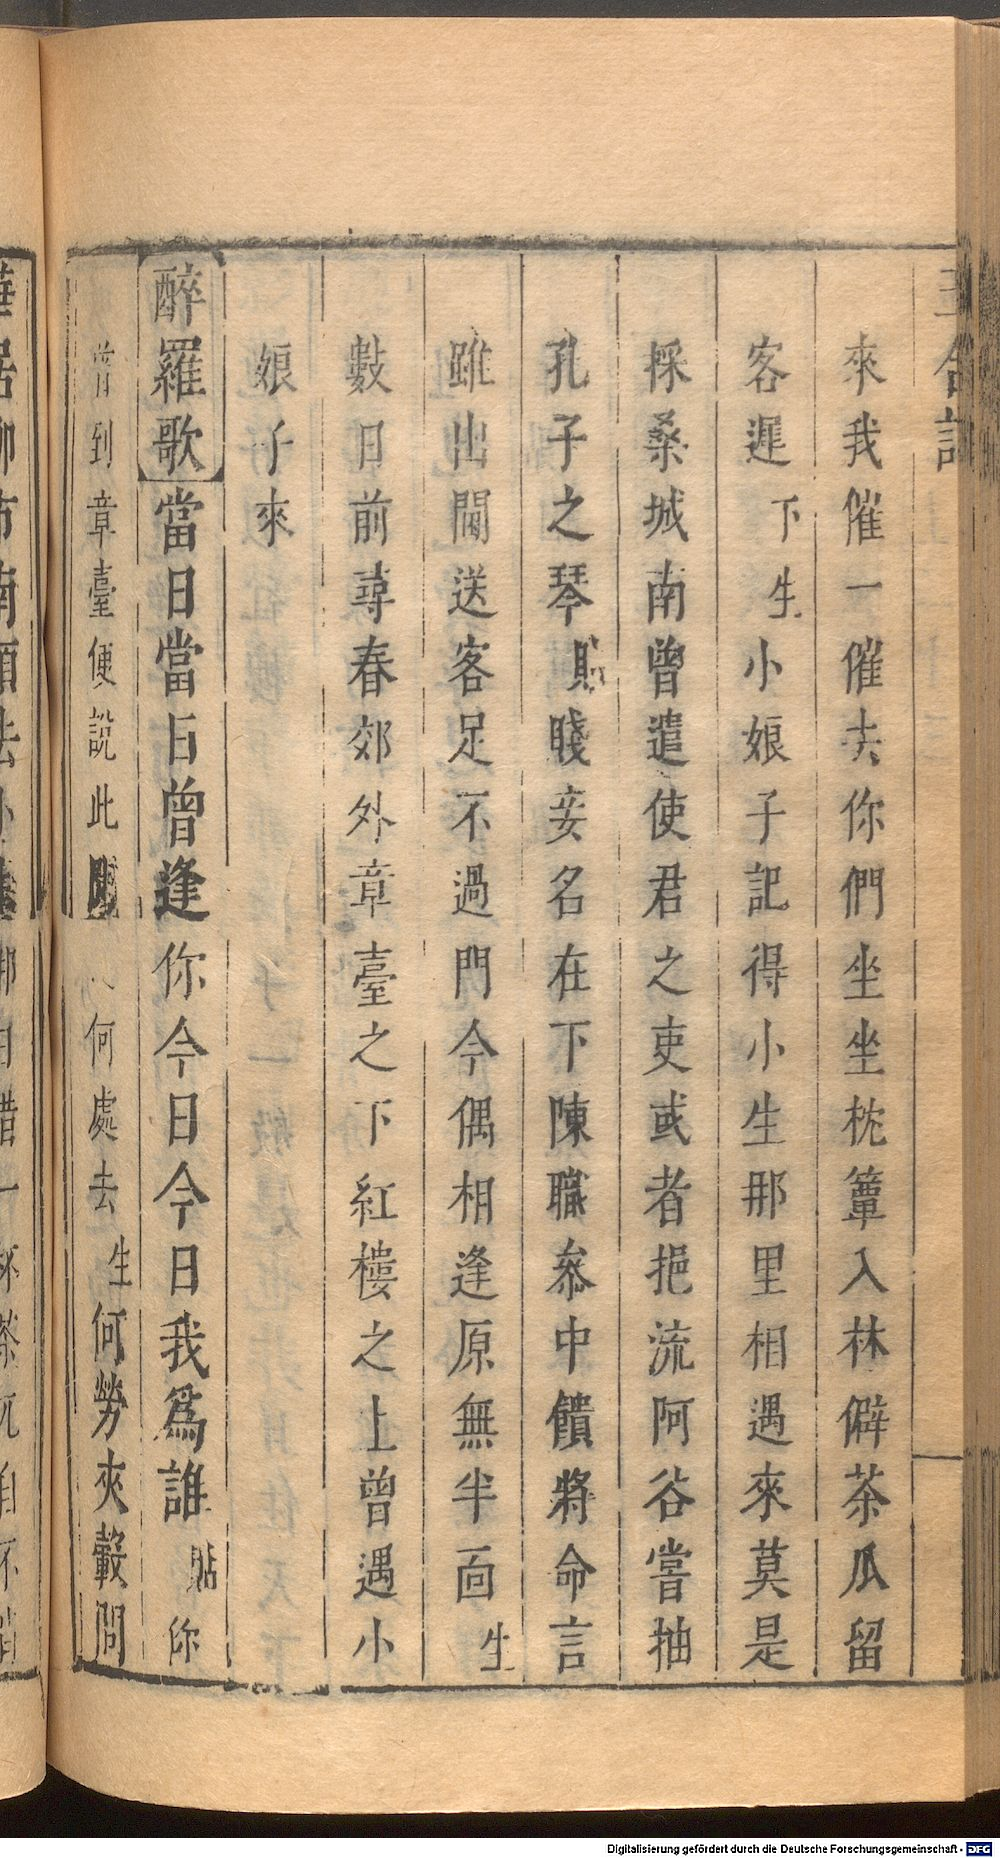 玉合記
來我催一催去你們坐坐枕簟入林僻茶瓜留
客遲下生小娘子記得小生那里相遇來莫是
採桑城南曾遣使君之吏或者挹流阿谷嘗抽
孔子之琴貼賤妾名在下陳職叅中饋將命言
雖出閫送客足不過門今偶相逢原無半面生
數日前尋春郊外章臺之下紅樓之上曾遇小
娘子來
醉羅歌當日當日曾逢你今日今日我爲誰貼你
曾到章臺便說此何處去生何勞夾轂問
Digitalisierung gefördert durch die Deutsche Forschungsgemeinschaft - DFG